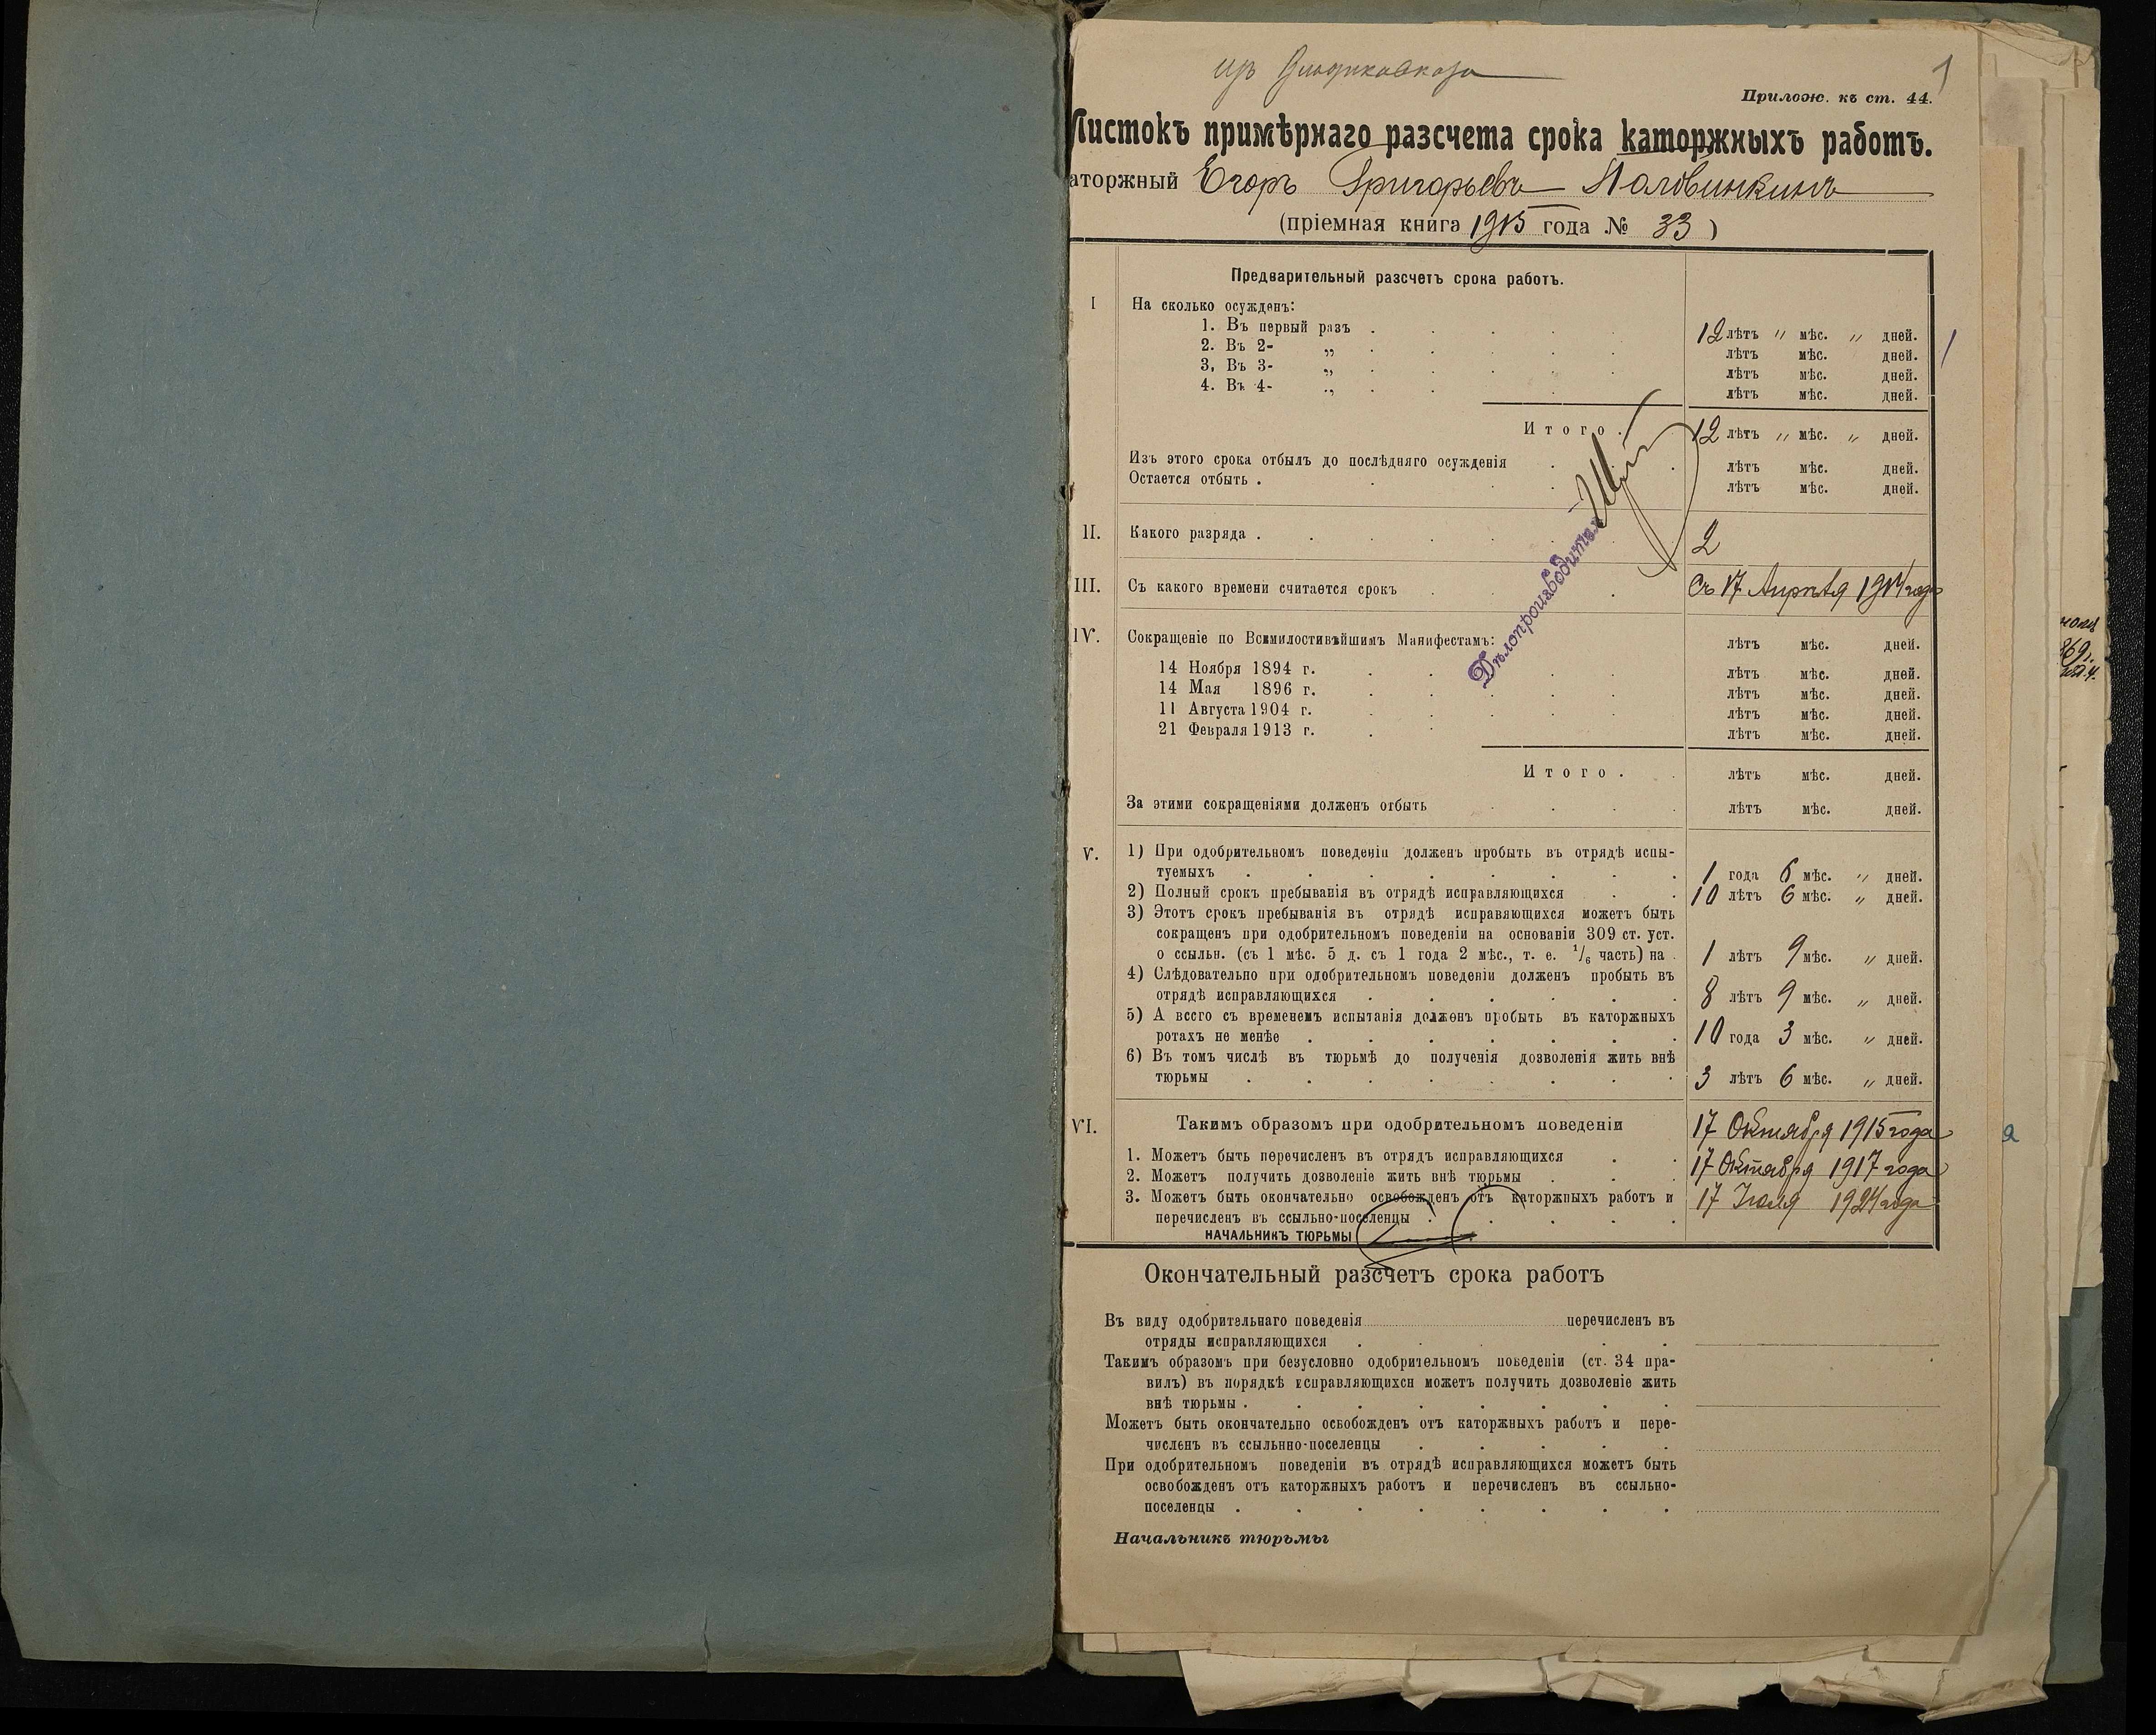 изъ Владикавказа
1
Прилож. къ ст. 44.
Листокъ примѣрнаго разсчета срока каторжныхъ работъ.
аторжный Егоръ Григорьевъ Половинкинъ
(пріемная книга 1915 года № 33)
Предварительный разсчетъ срока работъ.
I На сколько осужденъ:
1. Въ первый разъ . . . . . 12 лѣтъ " мѣс. " дней.
2. Въ 2- „ . . . . . лѣтъ мѣс. дней.
3, Въ 3- „ . . . . . лѣтъ мѣс. дней.
4. Въ 4- „ . . . лѣтъ мѣс. дней.
Итого. 12 лѣтъ " мѣс. " дней.
Изъ этого срока отбылъ до послѣдняго осужденія . . . лѣтъ мѣс. дней.
Остается отбыть . . . . лѣтъ мѣс. дней.
II. Какого разряда . . . . . . 2
III. Съ какого времени считается срокъ . . . Съ 17 Апрѣля 1914 года
Дѣлопроизводитель
IV. Сокращеніе по Всемилостивѣйшимъ Манифестамъ: лѣтъ мѣс. дней.
14 Ноября 1894 г. . . . . лѣтъ мѣс. дней.
14 Мая 1896 г. . . . . . лѣтъ мѣс. дней.
11 Августа 1904 г. . . . . лѣтъ мѣс. дней.
21 Февраля 1913 г. . . лѣтъ мѣс. дней.
Итого . . лѣтъ мѣс. дней.
За этими сокращеніями долженъ отбыть . . . . лѣтъ мѣс. дней.
V. 1) При одобрительномъ поведеніи долженъ пробыть въ отрядѣ испы-
туемыхъ . . . . . . . . 1 года 6 мѣс. " дней.
2) Полный срокъ пребыванія въ отрядѣ исправляющихся . . 10 лѣтъ 6 мѣс. " дней.
3) Этотъ срокъ пребыванія въ отрядѣ исправяющихся можетъ быть
сокращенъ при одобрительномъ поведеніи на основаніи 309 ст. уст.
о ссыльн. (съ 1 мѣс. 5 д. съ 1 года 2 мѣс., т. е. 1/6 часть) на . 1 лѣтъ 9 мѣс. " дней.
4) Слѣдовательно при одобрительномъ поведеніи долженъ пробыть въ
отрядѣ исправляющихся . . . . . . 8 лѣтъ 9 мѣс. " дней.
5) А всего съ временемъ испытанія долженъ пробыть въ каторжныхъ
ротахъ не менѣе . . . . . . . 10 года 3 мѣс. " дней.
6) Въ томъ числѣ въ тюрьмѣ до полученія дозволенія жить внѣ
тюрьмы . . . . . . . . 3 лѣтъ 6 мѣс. " дней.
VI. Такимъ образомъ при одобрительномъ поведеніи 17 Октября 1915 года
1. Можетъ быть перечисленъ въ отрядъ исправляющихся . . 17 Октября 1917 года
2. Можетъ получить дозволеніе жить внѣ тюрьмы . . .
3. Можетъ быть окончательно освобожденъ отъ каторжныхъ работъ и 17 Іюля 1924 года
перечисленъ въ ссыльно-поселенцы . . . . .
НАЧАЛЬНИКЪ ТЮРЬМЫ
Окончательный разсчетъ срока работъ
Въ виду одобрительнаго поведенія перечисленъ въ
отряды исправляющихся . . . .
Такимъ образомъ при безусловно одобрительномъ поведеніи (ст. 34 пра-
вилъ) въ порядкѣ исправляющихся можетъ получить дозволеніе жить
внѣ тюрьмы . . . . . . . .
Можетъ быть окончательно освобожденъ отъ каторжныхъ работъ и пере-
численъ въ ссыльнно-поселенцы . . . . .
При одобрительномъ поведеніи въ отрядѣ исправляющихся можетъ быть
освобожденъ отъ каторжныхъ работъ и перечисленъ въ ссыльно-
поселенцы . . . . . . . .
Начальникъ тюрьмы